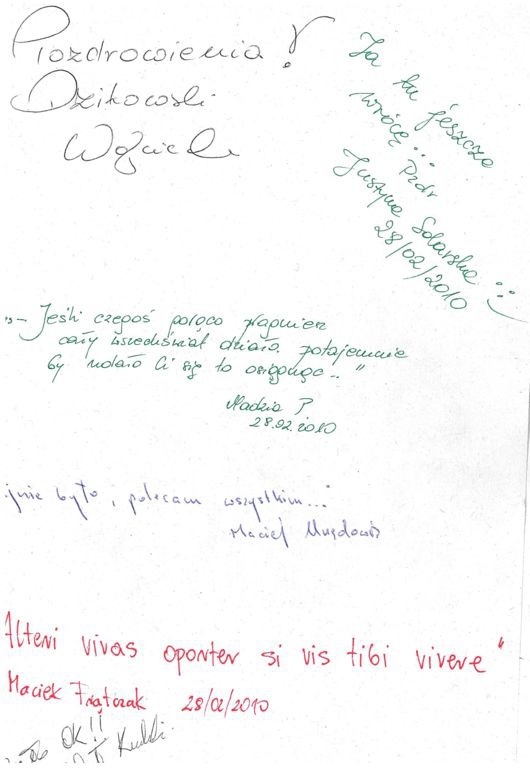 Pozdrowienia!
Dzikowski
Wojciech
Ja tu jeszcze
wrócę... Pzdr
Justyna Solarska :)
28/02/2010
„– Jeśli czegoś gorąco pragniesz
cały wszechświat działa potajemnie
by udało Ci się to osiągnąć..."
Madzia P
28.02.2010
było, polecam wszystkim..."
Maciej
Alteri vivas oportet si vis tibi vivere"
Maciek Frątczak 28/02/2010
OK!!